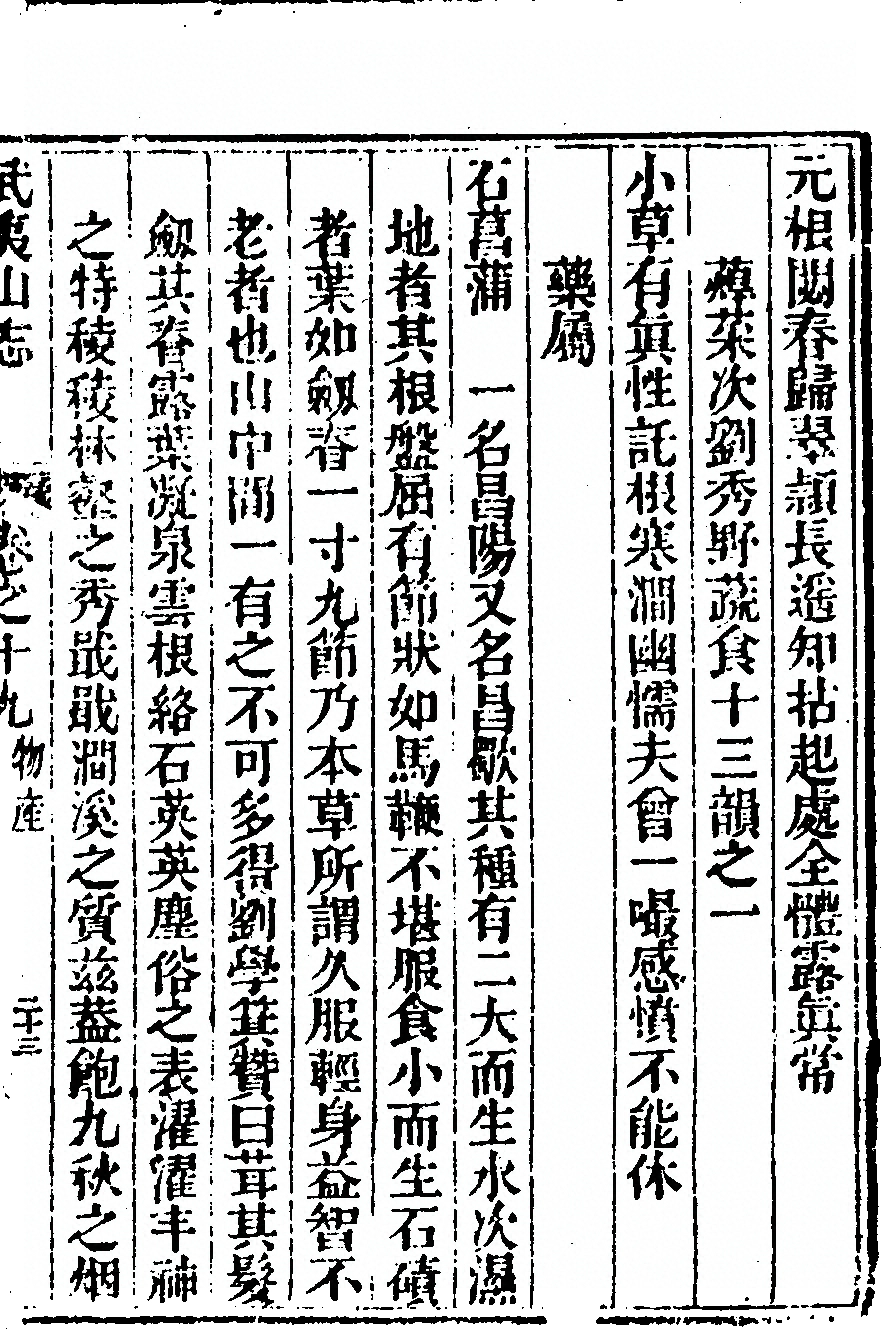 元根閟春歸翠穎長遥知拈起處全體露眞常
蓴菜次劉秀野蔬食十三韻之一
小草有眞性託根寒澗幽懦夫曾一嘬感憤不能休
藥屬
石菖蒲　一名昌陽又名昌歜其種有二大而生水次濕
地者其根盤屈有節狀如馬鞭不堪服食小而生石磧
者葉如劒脊一寸九節乃本草所謂久服輕身益智不
老者也山中間一有之不可多得劉學箕贊曰茸其髮
劒其脊露葉凝泉雲根絡石英英塵俗之表濯濯丰神
之特稜稜林壑之秀戢戢澗溪之質茲葢飽九秋之烟
武夷山志
卷之十九 物產
二十三